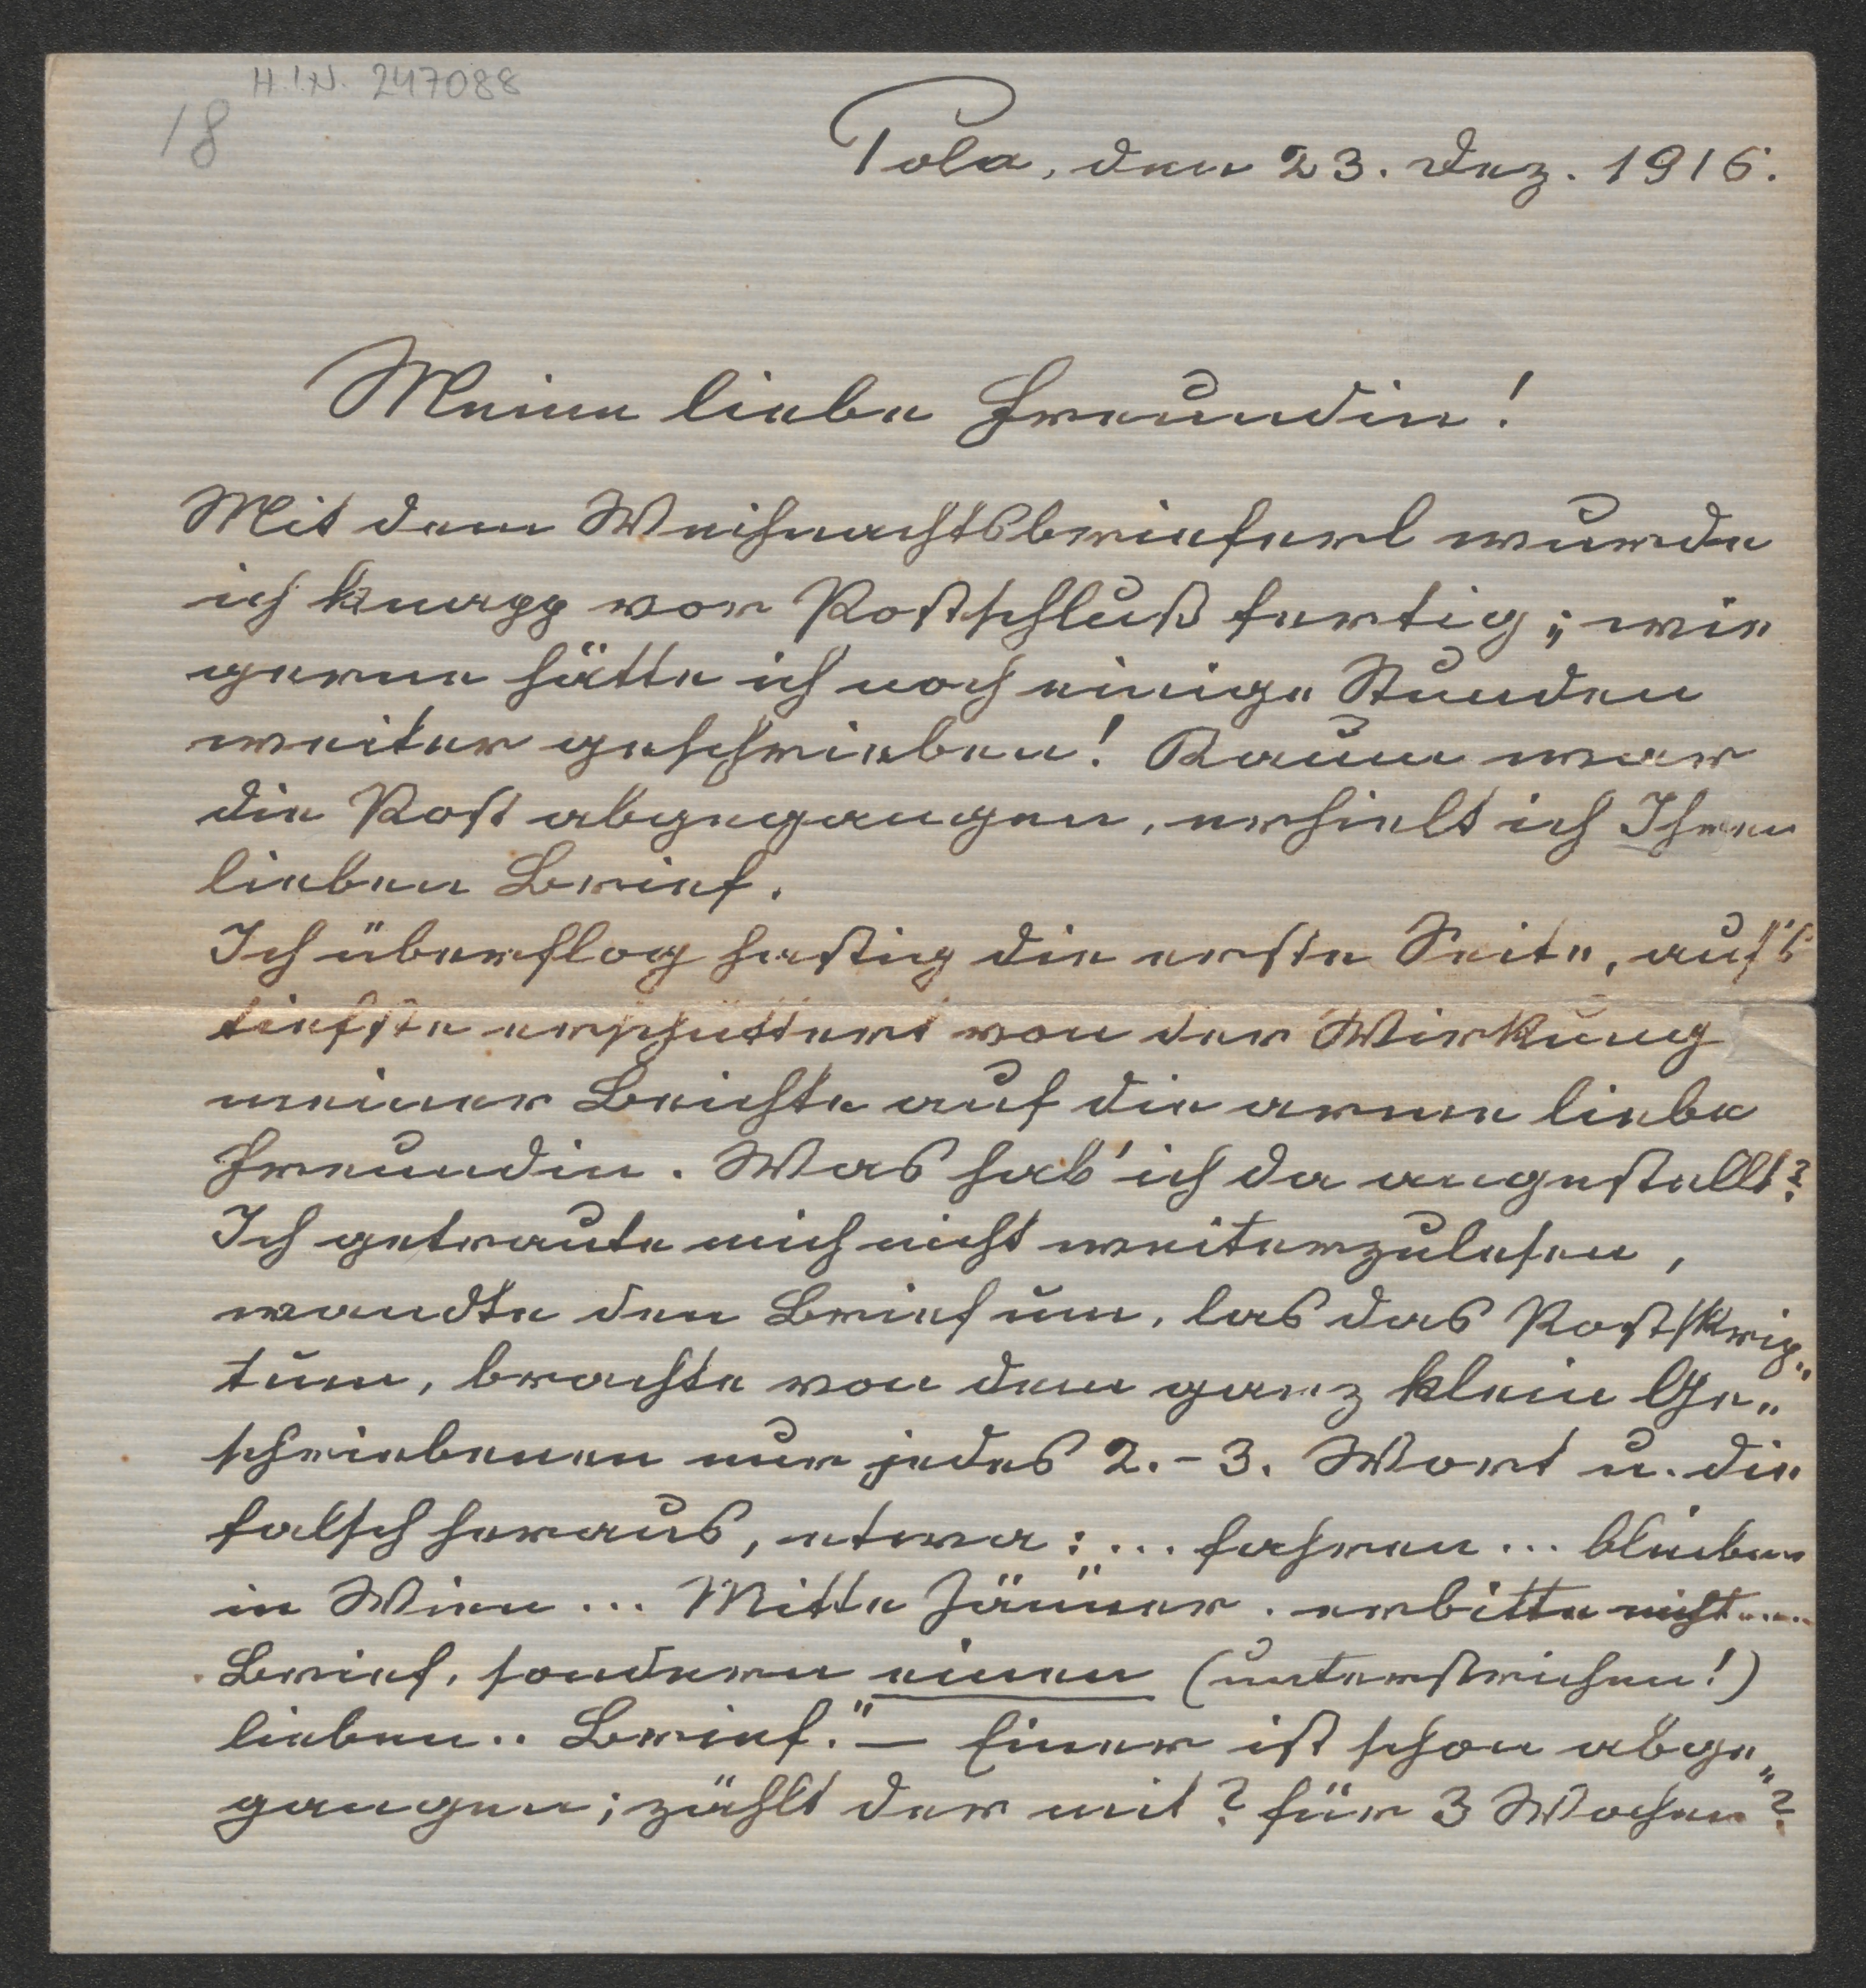 H.I.N. 247088
18
Pola, den 23. Dez. 1916.
Meine liebe Freundin!
Mit dem Weihnachtsbrieferl wurde
ich knapp vor Postschluß fertig; wie
gerne hätte ich noch einige Stunden
weiter geschrieben! Kaum war
die Post abgegangen, erhielt ich Ihren
lieben Brief.
Ich überflog hastig die erste Seite, auf's
tiefste erschüttert von der Wirkung
meiner Beichte auf die arme liebe
Freundin. Was hab' ich da angestellt?
Ich getraute mich nicht weiterzulesen,
wandte den Brief um, las das Postskrip„
tum, brachte von dem ganz klein Ge„
schriebenen nur jedes 2.-3. Wort u. die
falsch heraus, etwa: „... fahren ... bleiben
in Wien ... Mitte Jänner . erbitte nicht ....
Brief, sondern einen (unterstrichen!)
lieben .. Brief." — Einer ist schon abge„
gangen; zählt der mit? für 3 Wochen?